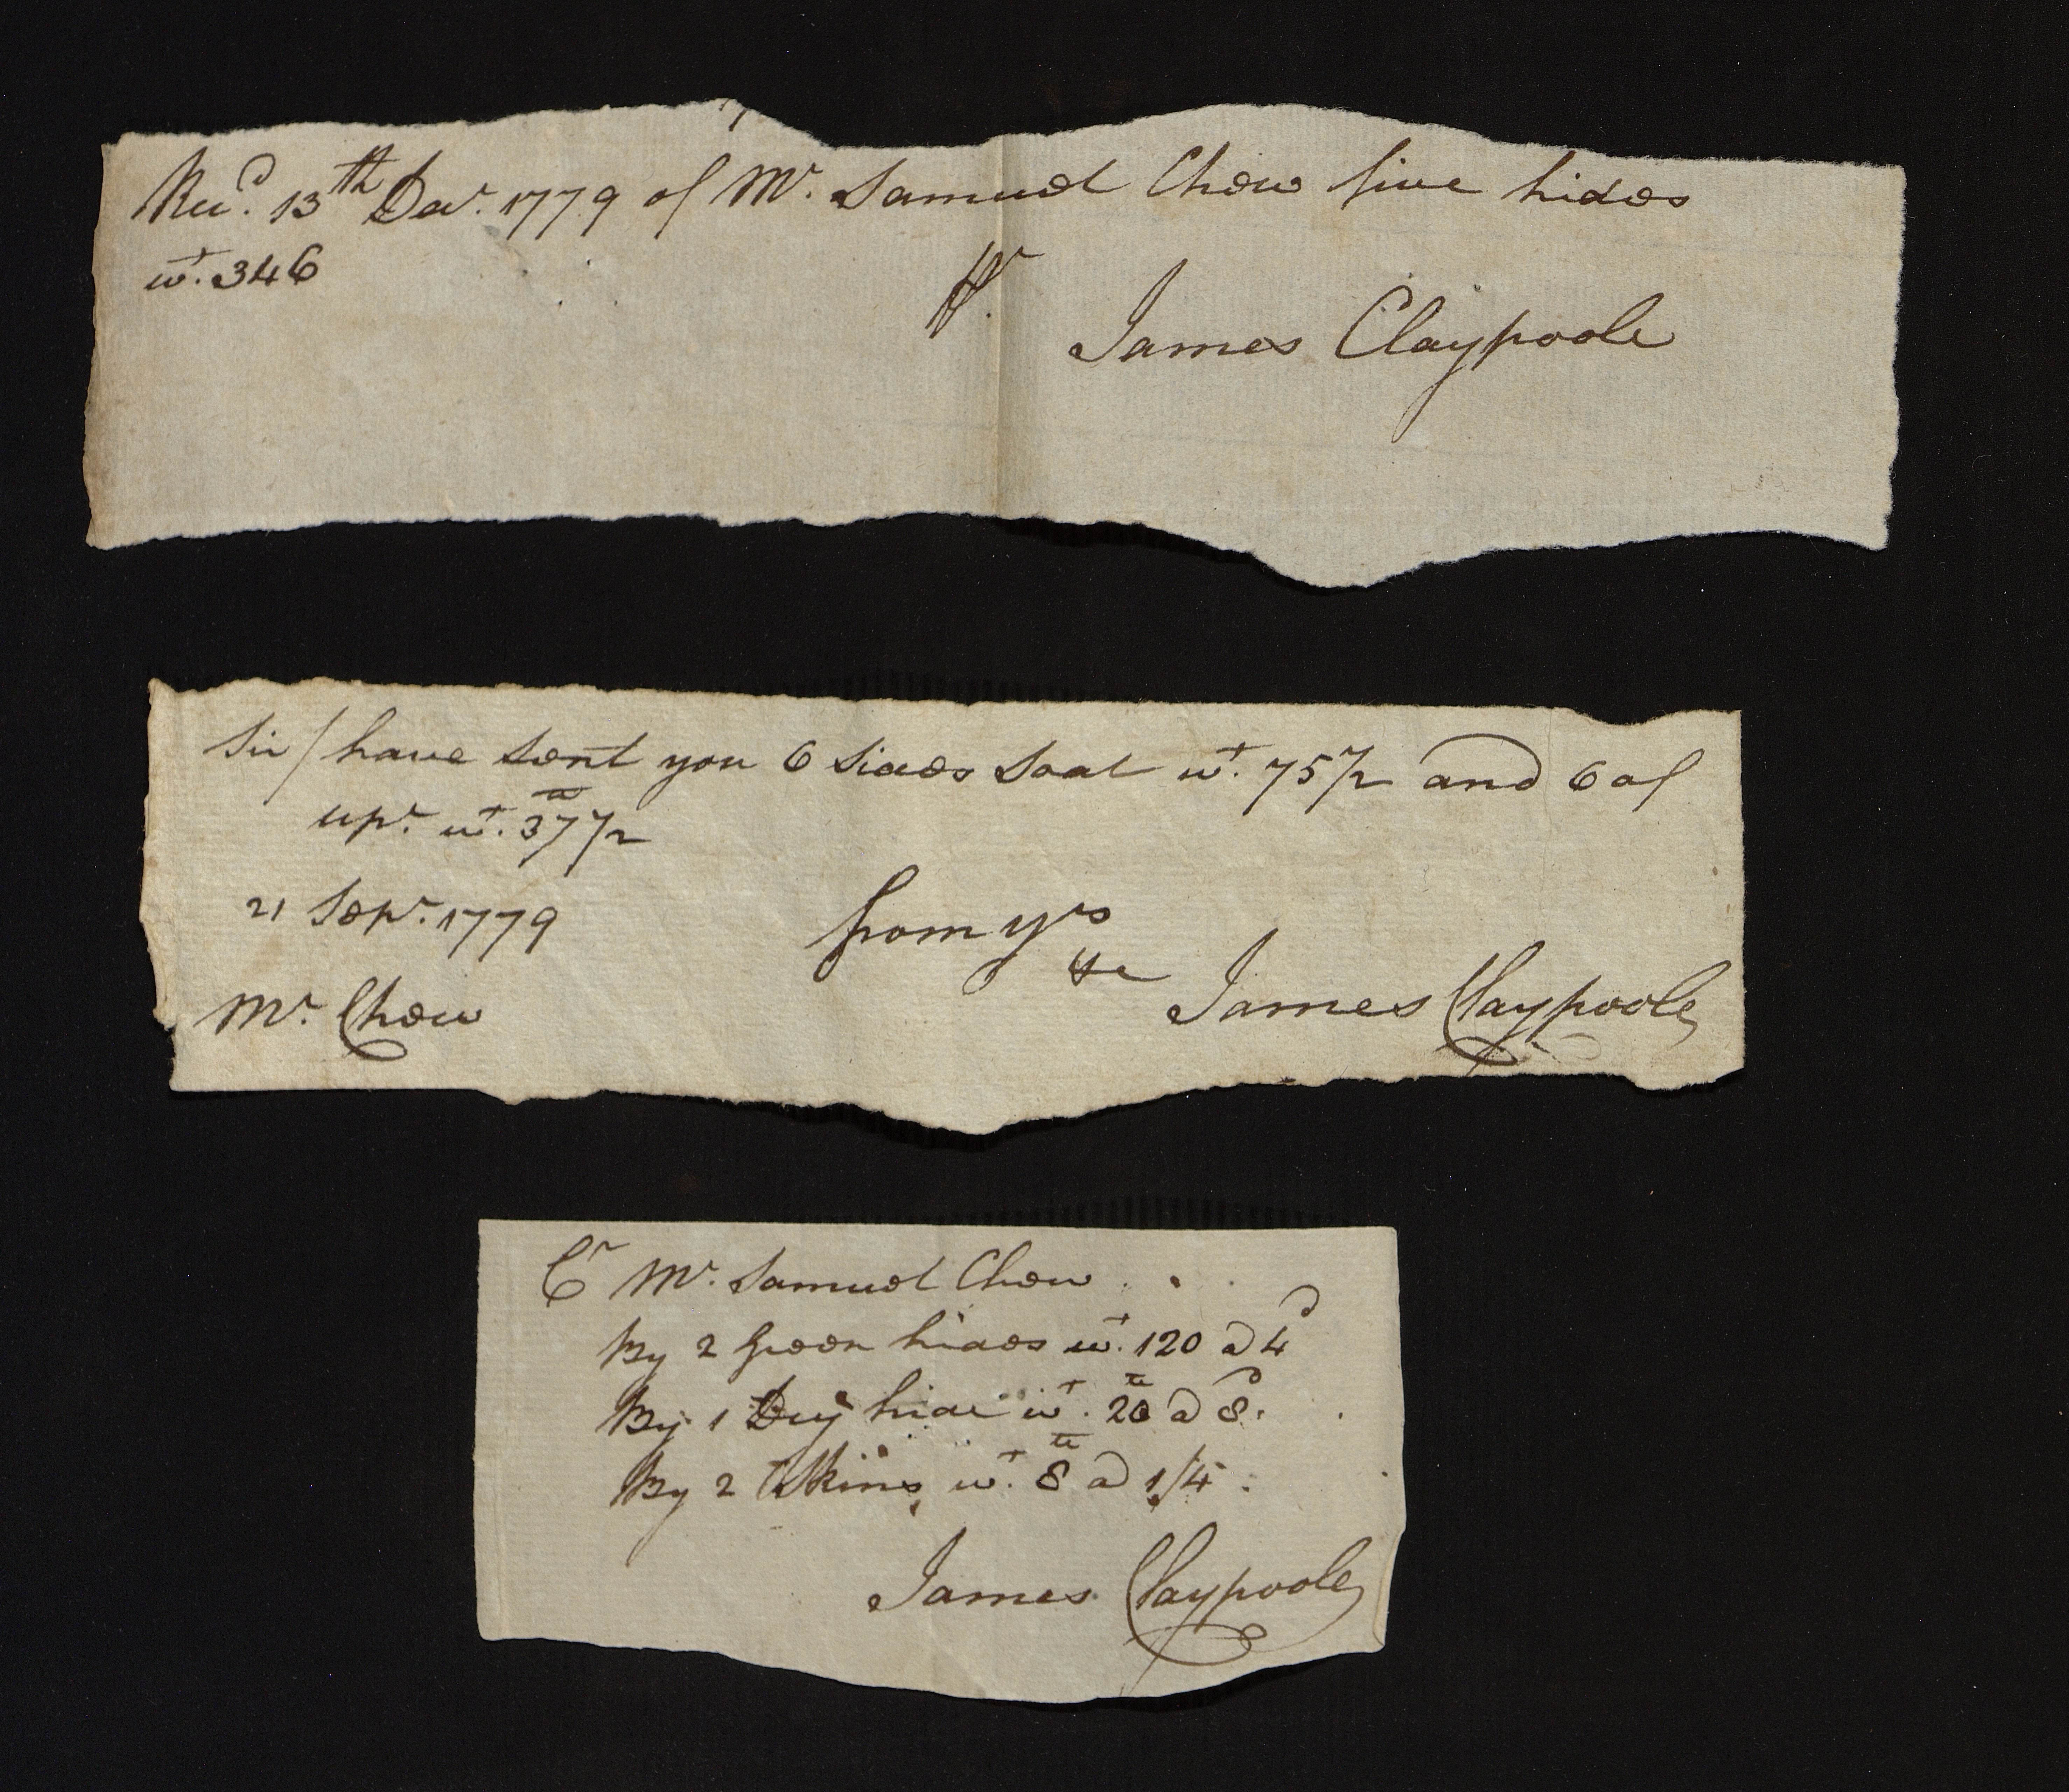 Recd. 13th Decr. 1779 of Mr. Samuel Chew five hides
wt. 346
Pr.
James Claypoole
Sir / have sent you 6 Sides Soal wt. 75 1/2 and 6 of
upr. wt. 37 1/2
21 Sepr. 1779
from yrs
&c
James Claypoole
Mr. Chew
Cr Mr. Samuel Chew
By 2 Green hides wt. 120 a 4d
By 1 Dry hide wt. 20 a 8d.
By 2 Skins wt. 8 a 1/4
James Claypoole